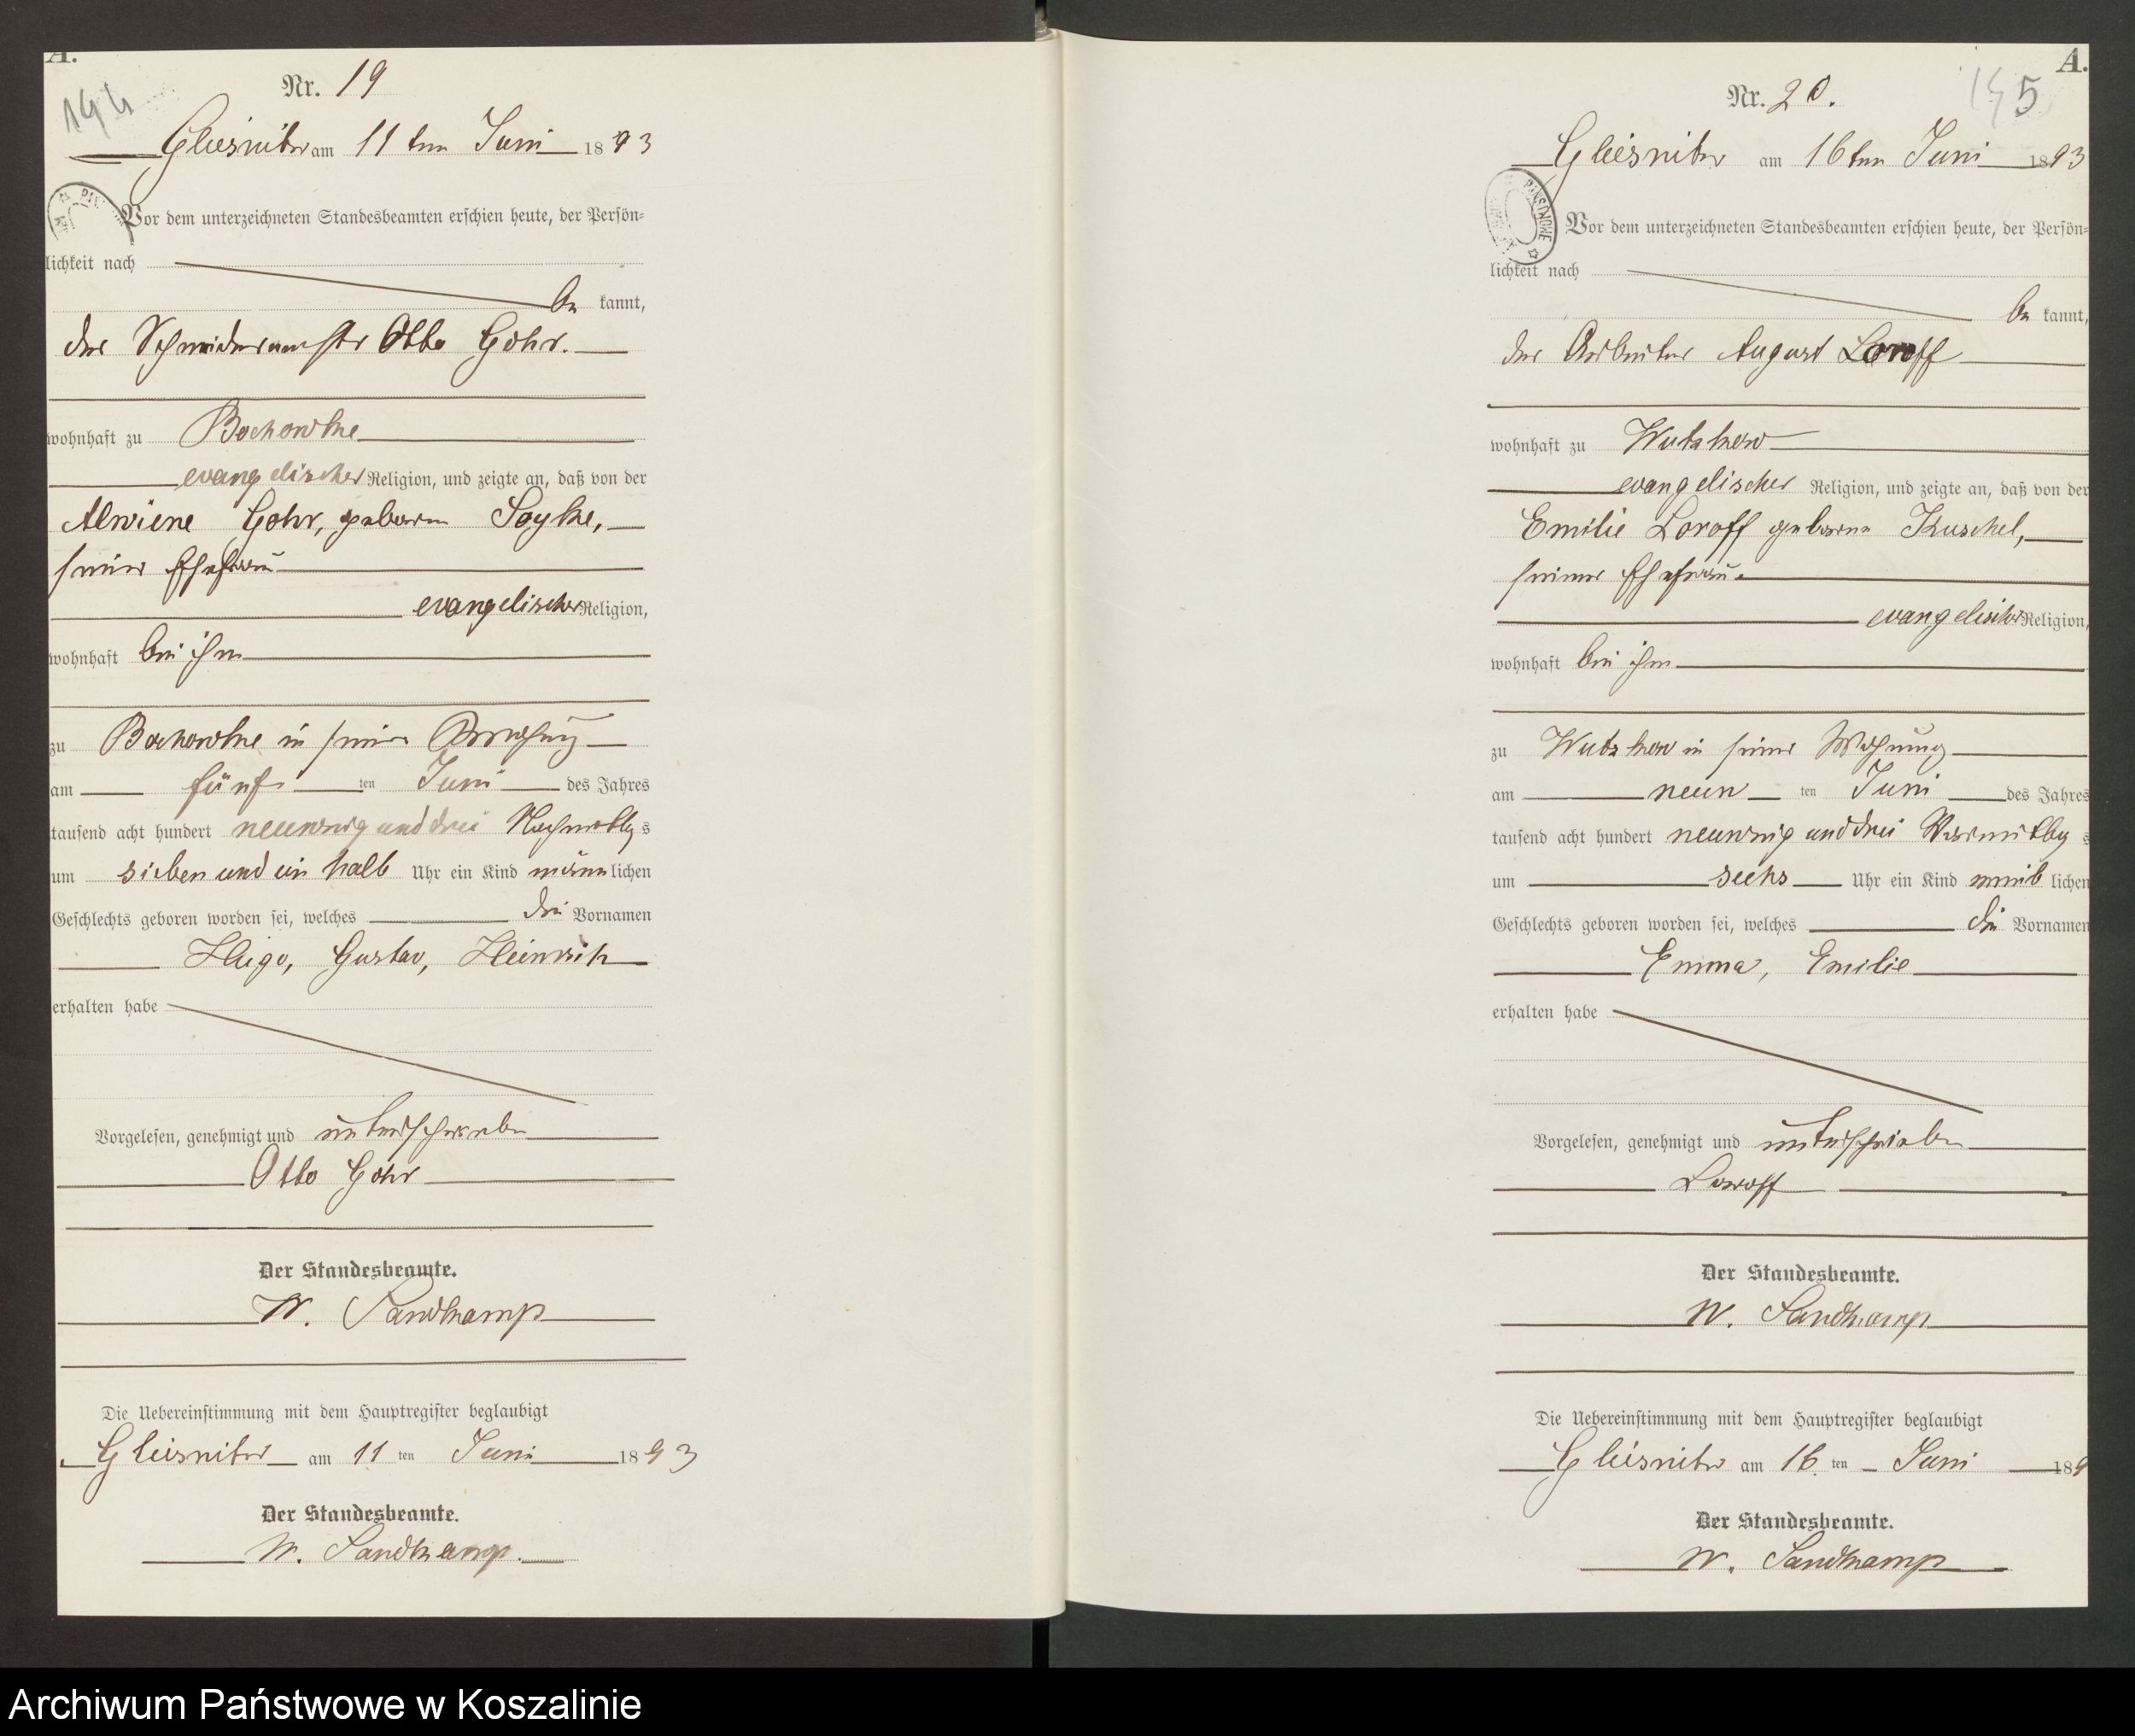 A.
194
Nr. 19
Gliesnitz am 11 ten Juni 1893
Vor dem unterzeichneten Standesbeamten erschien heute, der Persön-
lichkeit nach
be kannt,
der Schneidermeister Otto Gohr.
wohnhaft zu Bochowke
evangelischer Religion, und zeigte an, daß von der
Alwiene Gohr, geboren Soyke,
seiner Ehefrau
evangelischer Religion,
wohnhaft bei ihm
zu Bochowke in seiner
am fünf ten Juni des Jahres
tausend acht hundert neunzig und drei Nachmittag s
um sieben und ein halb Uhr ein Kind männlichen
Geschlechts geboren worden sei, welches die Vornamen
Hugo, Gustav, Heinrich
erhalten habe
Vorgelesen, genehmigt und unterschrieben
Otto Gohr
Der Standesbeamte.
W. Sandkamp
Die Uebereinstimmung mit dem Hauptregister beglaubigt
Gliesnitz am 11 ten Juni 1893
Der Standesbeamte.
W. Sandkamp.
A.
5
Nr. 20.
Gliesnitz am 16ten Juni 1893
Vor dem unterzeichneten Standesbeamten erschien heute, der Persön-
lichkeit nach
be kannt,
der Arbeiter August Loroff
wohnhaft zu Wutzkow
evangelischer Religion, und zeigte an, daß von der
Emilie Loroff geborene Kuschel,
seiner Ehefrau
evangelischer Religion,
wohnhaft bei ihm
zu Wutzkow in seiner Wohnung
am neun ten Juni des Jahres
tausend acht hundert neunzig und drei Vormittag s
um sechs Uhr ein Kind weib lichen
Geschlechts geboren worden sei, welches die Vornamen
Emma, Emilie
erhalten habe
Vorgelesen, genehmigt und unterschrieben
Loroff
Der Standesbeamte.
W. Sandkamp
Die Uebereinstimmung mit dem Hauptregister beglaubigt
Gliesnitz am 16 ten Juni 189
Der Standesbeamte.
W. Sandkamp
Archiwum Państwowe w Koszalinie